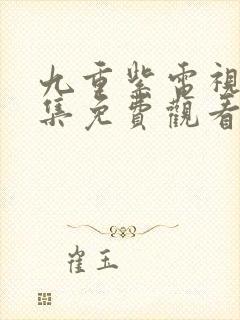 九重紫電視
集免費觀看
崔玉